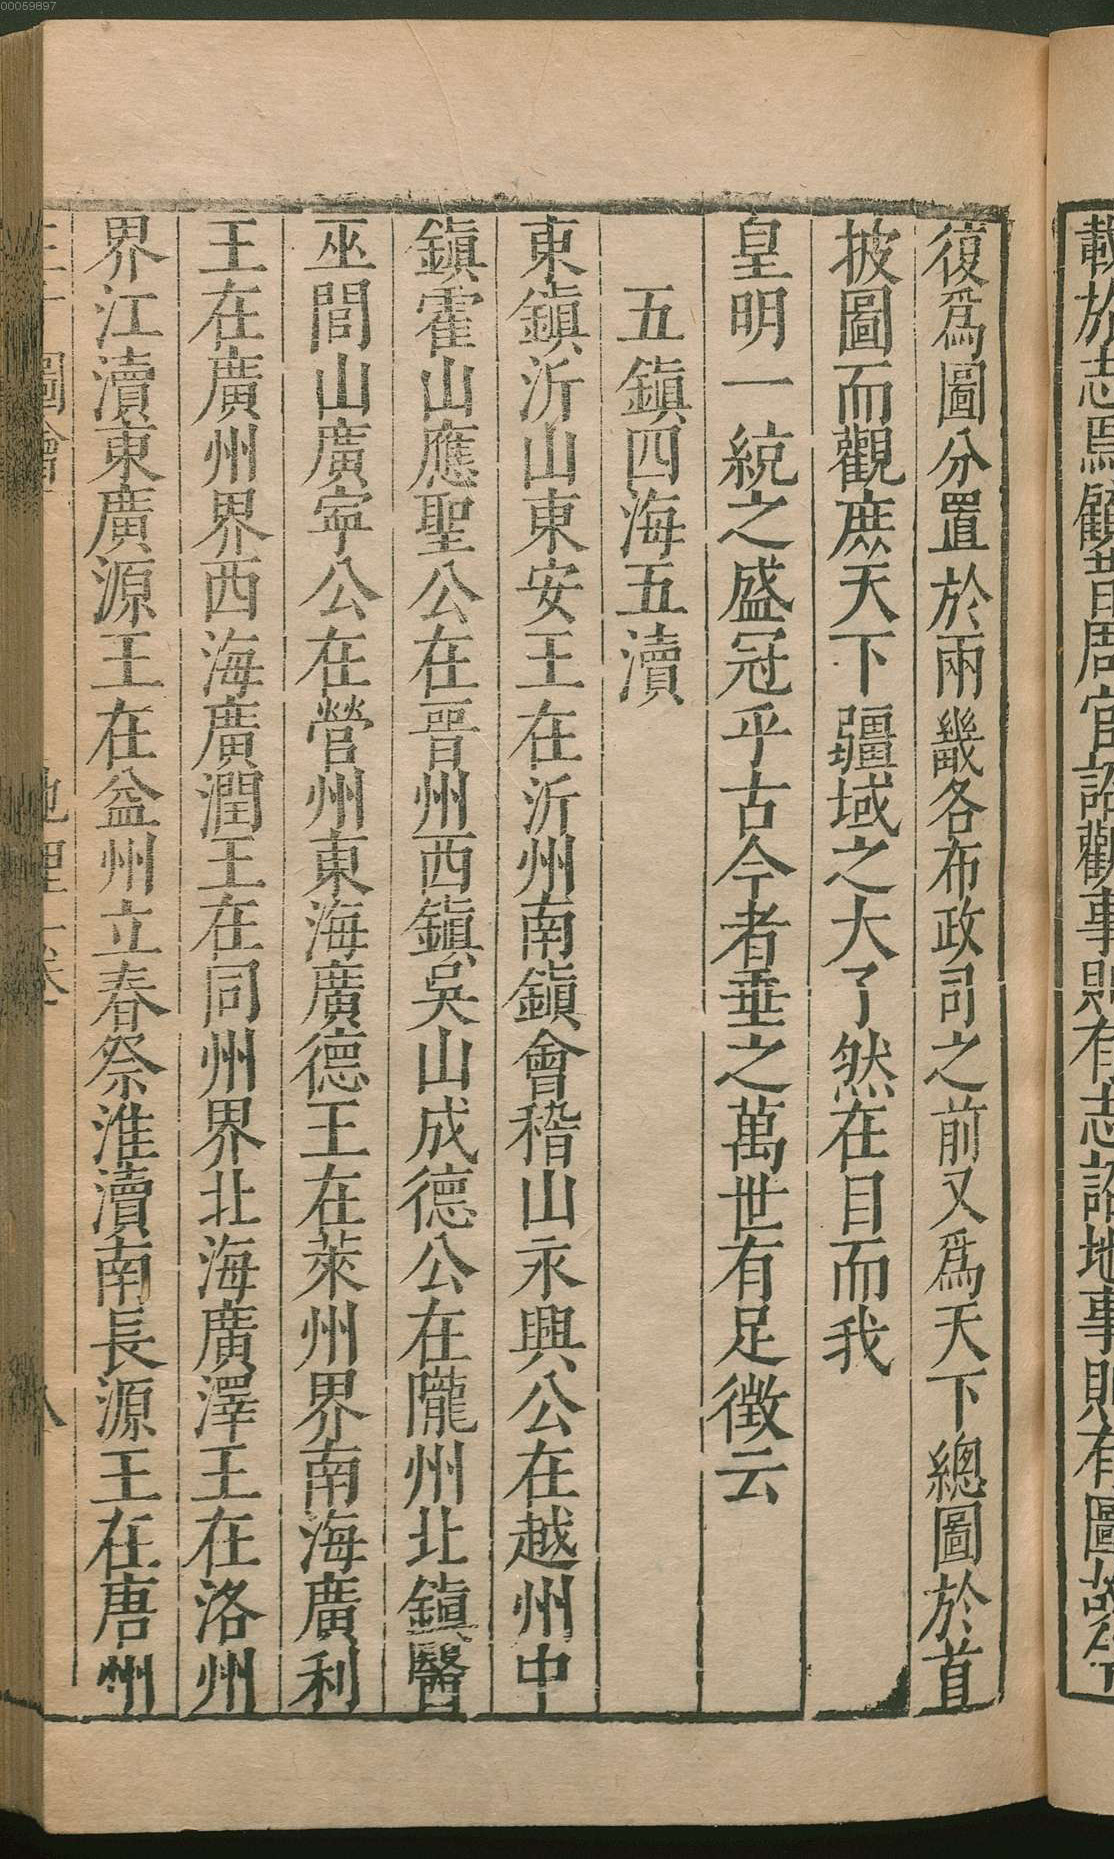 00059897
載於志焉顧昔周官詔觀事則有志詔地事則有圖故今
復爲圖分置於兩畿各布政司之前又爲天下總圖於首
披圖而觀庶天下疆域之大了然在目而我
皇明一統之盛冠乎古今者垂之萬世有足徵云
五鎮四海五瀆
東鎮沂山東安王在沂州南鎮會稽山永興公在越州中
鎮霍山應聖公在晉州西鎮吳山成德公在隴州北鎮醫
巫閭山廣寧公在營州東海廣德王在萊州界南海廣利
王在廣州界西海廣潤王在同州界北海廣澤王在洛州
界江瀆東廣源王在益州立春祭淮瀆南長源王在唐州
圖會 地理一卷 八